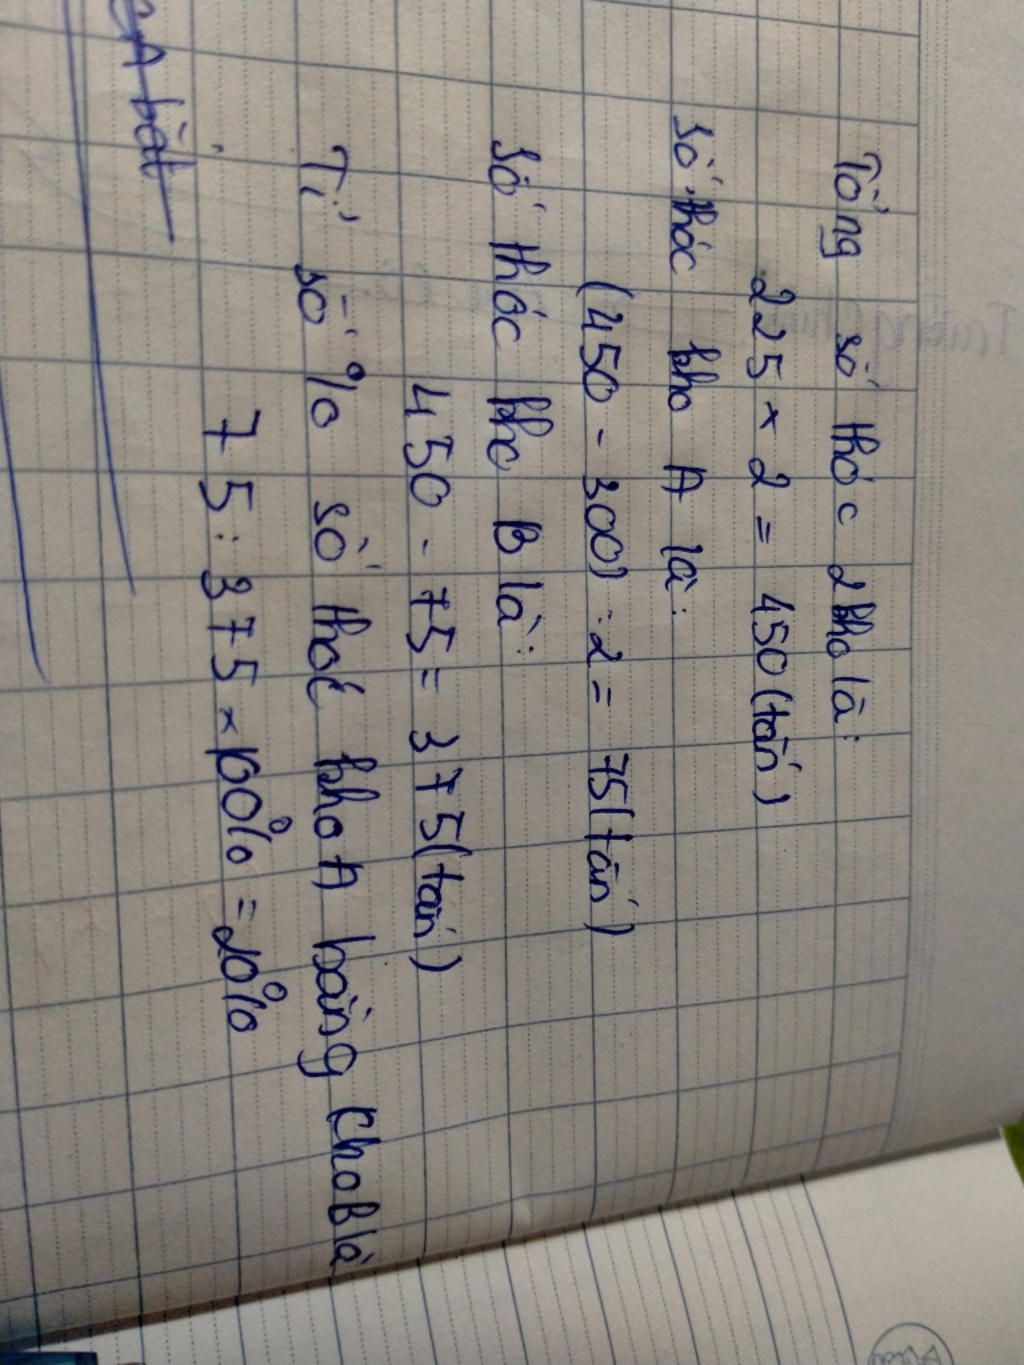 Tổng số thóc 2 kho là:
225 × 2 = 450 (tấn)
số thóc kho A là:
(450 - 300) : 2 = 75 (tấn)
số thóc kho B là:
450 - 75 = 375 (tấn)
Tỉ số % số thóc kho A bằng kho B là
75 : 375 × 100% = 20%